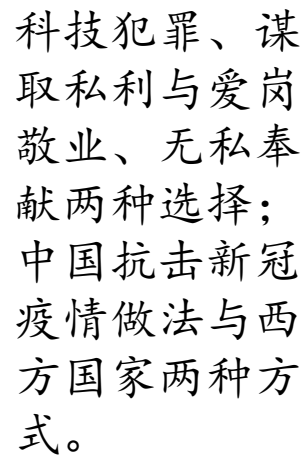 科技犯罪、谋
取私利与爱岗
敬业、无私奉
献两种选择；
中国抗击新冠
疫情做法与西
方国家两种方
式。